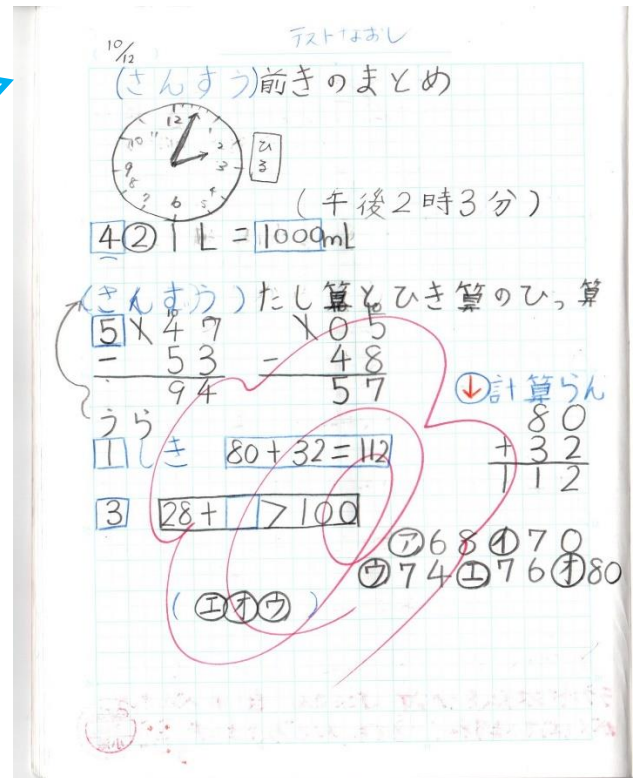 10/12
テストなおし
(さんすう)前きのまとめ
12 1 2 3 4 5 6 7 8 9 10 11
ひる
(午後2時3分)
4 ② 1L = 1000mL
(さんすう)たし算とひき算のひっ算
5 147 105
- 53 - 48
94 57
うら
↓計算らん
80
+ 32
112
1 しき 80+32=112
3 28+□>100
㋐68㋑70
㋒74㋓76㋔80
(㋓㋔㋒)